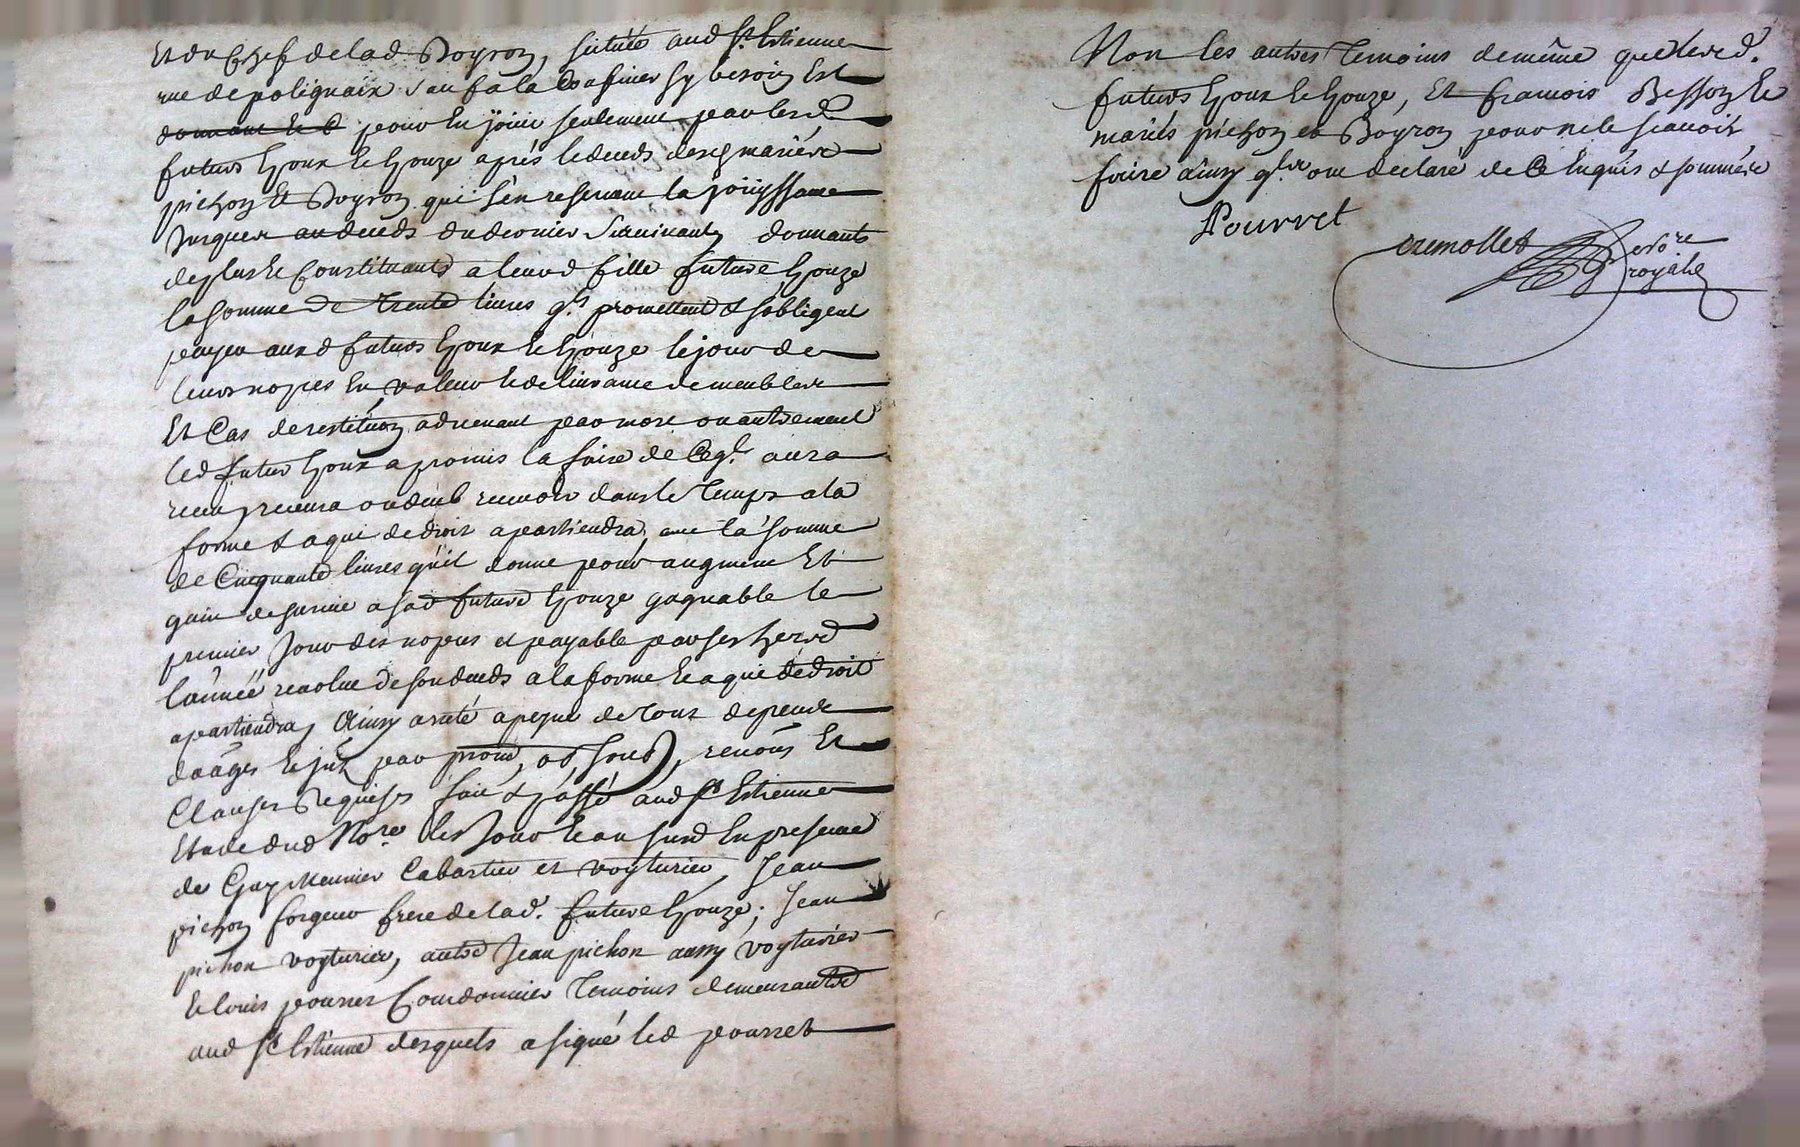 Et du chef de lad Boyron, scituée aud St Estienne
rue de polignaix sauf a la Confiner sy besoin Est
donnant led pour En jouir seulement par lesd
futurs Epoux Et Epouze aprés le deceds desd mariés
pichon Et Boyron qui s'en reservent la jouissance
Jusques au deceds du dernier Survivant, donnants
de plus les Constituants a leurd fille future Epouze
la somme de Trente livres ql promettent & s'obligent
payer auxd futurs Epoux Et Epouze le jour de
leurs nopces En valeur Et delivrance de meubles
Et Cas de restitûon advenant par mort ou autrement
led futur Epoux a promis la faire de Ce ql aura
receu, recevra ou deub recevoir dans le Temps a la
forme & a qui de droit apartiendra, avec la somme
de Cinquante livres qu'il donne pour augment Et
gain de survie a sad future Epouze gagnable le
premier Jour des nopces et payable par ses herrs
l'année revolue de son deceds a la forme Et a qui de droit
apartiendra, Ainsy areté a peyne de tous depens
domâges Et jnt par prom, ob, soub), renôns Et
Clauses Requises fait & passé aud St Estienne
Etude dud Nore les Jour Et an susd En presence
de Guy Meunier Cabartier et voyturier, Jean
pichon forgeur frere de lad. future Epouze; Jean
pichon voyturier, autre Jean pichon aussy voyturier
Et louis pourret Courdonnier Temoins demeurants
aud St Estienne desquels a signé led pourret
Non les autres Temoins de même que lesd.
futurs Epoux Et Epouze, Et francois Besson Et
mariés pichon et Boyron pour ne le scavoir
faire ainsy qls ont declaré de Ce Enquis & sommés
Pourret
cremollet
nore
royal